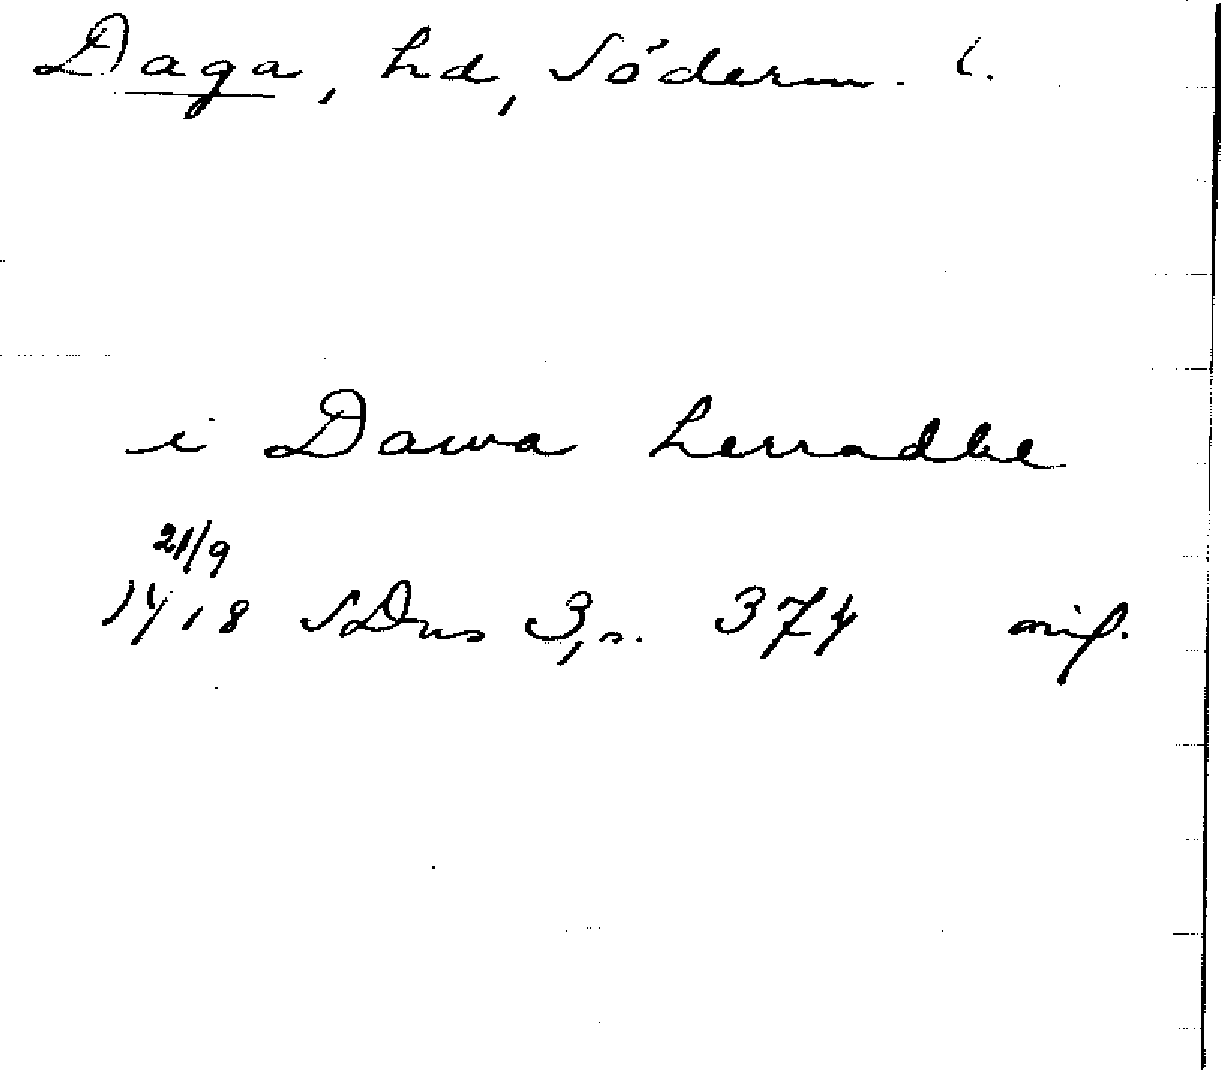 Daga, hd, Söderm. l.
i Dawa herradhe
21/9
1418 SDns 3, s. 374 mif.